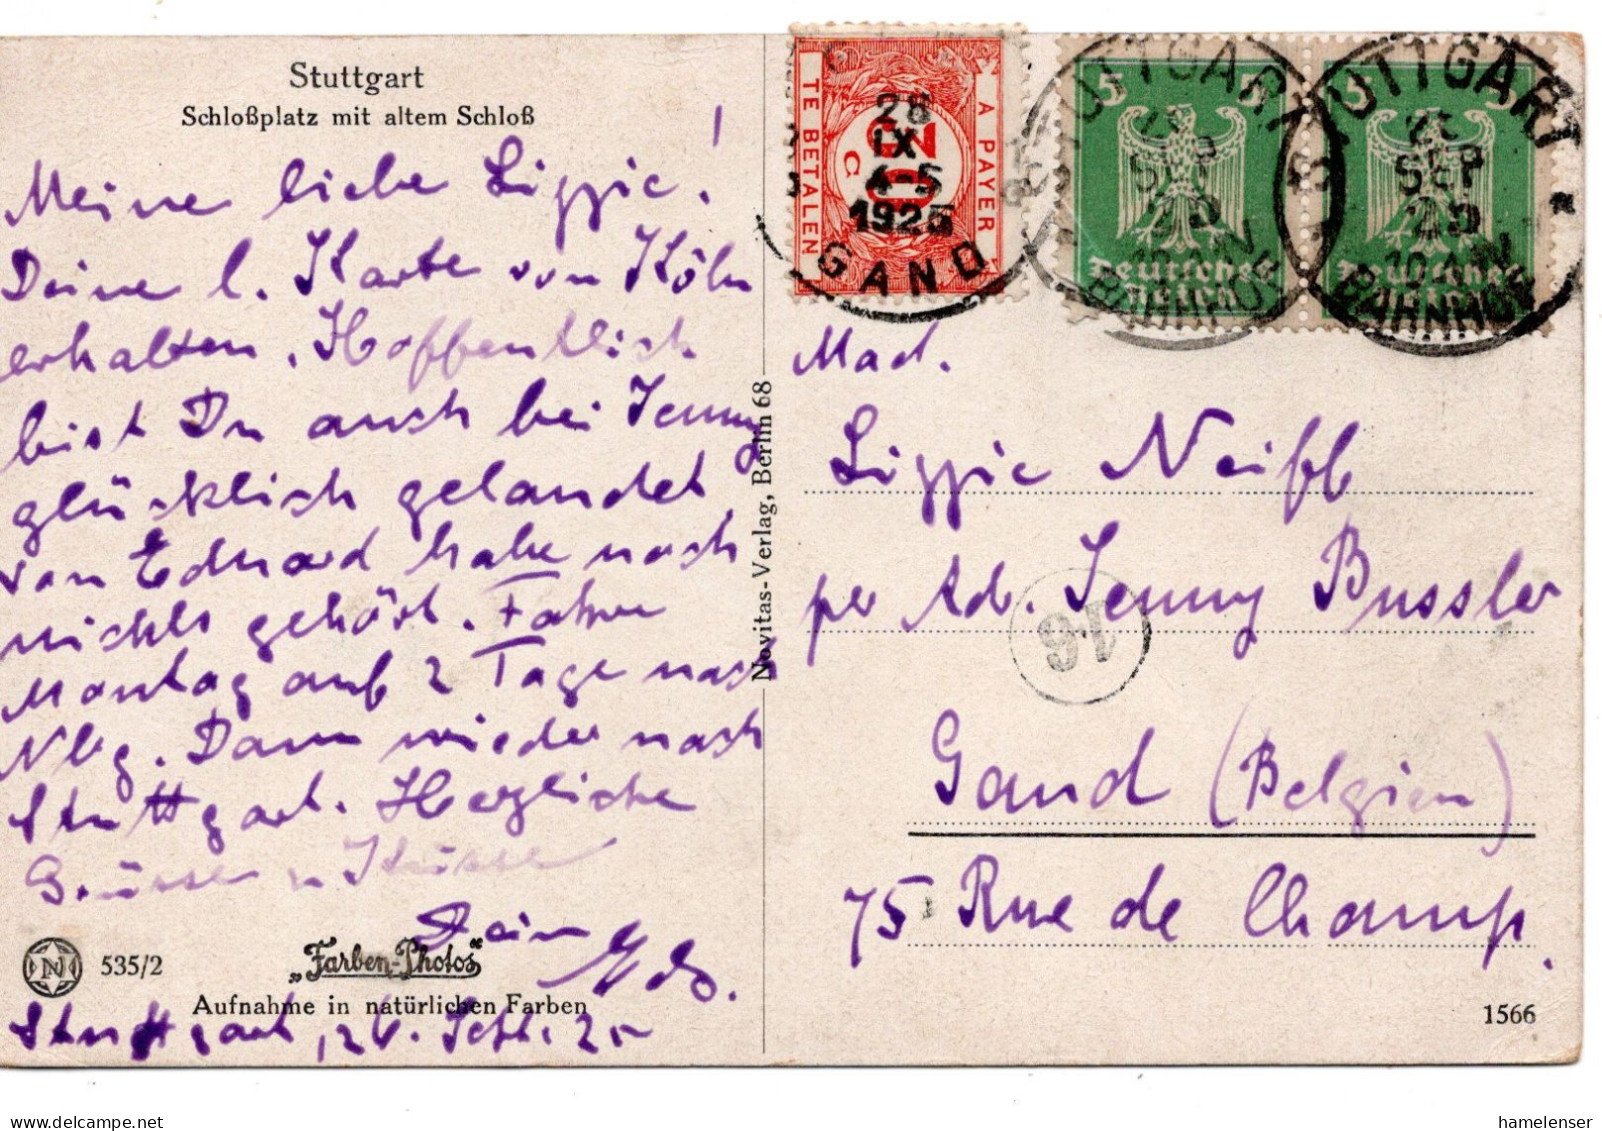 Stuttgart
Schloßplatz mit altem Schloß
Meine liebe Lizzie!
Deine l. Karte von Köln
erhalten. Hoffentlich
bist Du auch bei Jenny
glücklich gelandet
von Eduard habe noch
nichts gehört. Fahre
Montag auf 2 Tage nach
Nbg. Dann wieder nach
Stuttgart. Herzliche
Grüsse u Küsse
Dein
535/2
„Farben-Photos“
Aufnahme in natürlichen Farben
Stuttgart, 26. Sept. 25
Novitas-Verlag, Berlin 68
TE BETALEN
A PAYER
20 C
28
IX
4-5
1925
GAND
STUTTGART
SEP
25
10-11 N
BAHNHOF
5 5
Deutsches
Reich
STUTTGART
SEP
25
10-11 N
BAHNHOF
5 5
Deutsches
Reich
Mad.
Lizzie
per Adr. Jenny Bussler
16
Gand (Belgien)
75 Rue de Champ.
1566
delcampe.net
hamelenser